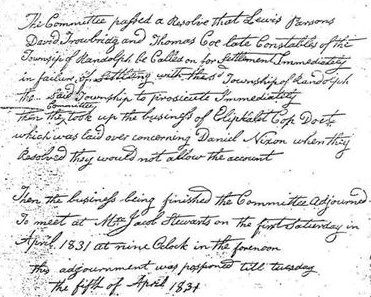 The Committee passed a Resolve that Lewis Parsons
David Trowbridg and Thomas Coe late Constables of the
Township of Randolph be Called on for Settlement Immediately
in failure of Settleing with the sd Township of Randolph
the said Township to prosicute Immediately
then the Committee took up the business of Eliphalet Cop Doct
which was laid over concerning Daniel Nixon when they
Resolved they would not allow the account
Then the business being finished the Committee Adjourned
To meet at Mr Jacob Stewarts on the first Saturday in
April 1831 at nine Clock in the forenoon
this adjournment was posponed till tuesday
the fifth of April 1831